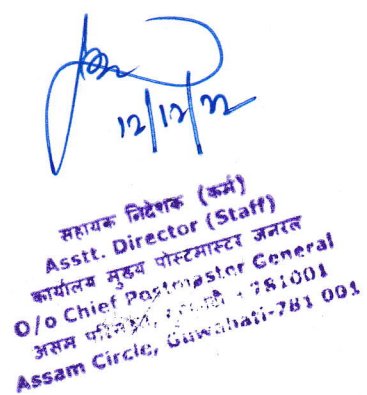 12/12/22
सहायक निदेशक (कर्म)
Asstt. Director (Staff)
कार्यालय मुख्य पोस्टमास्टर जनरल
O/o Chief Postmaster General
असम - 781001
Assam Circle, Guwahati-781 001